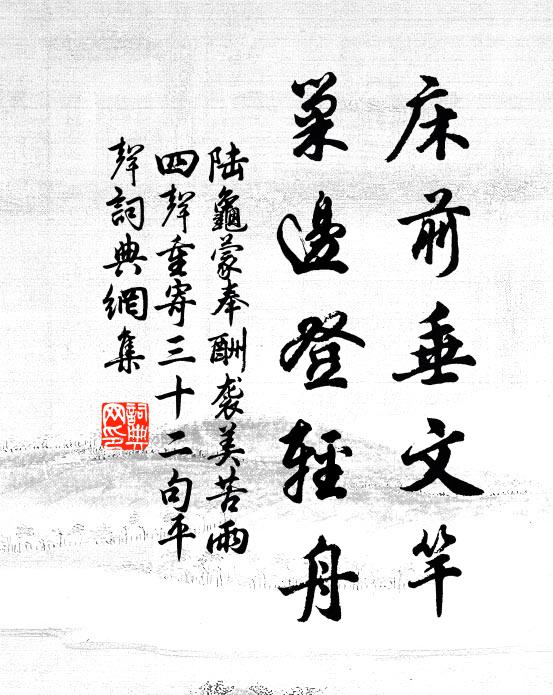 床前垂文竿
巢邊登輕舟
陆龜蒙奉酬袭美苦雨
四聲重寄三十二句平
聲詞典網集
詞典
网印